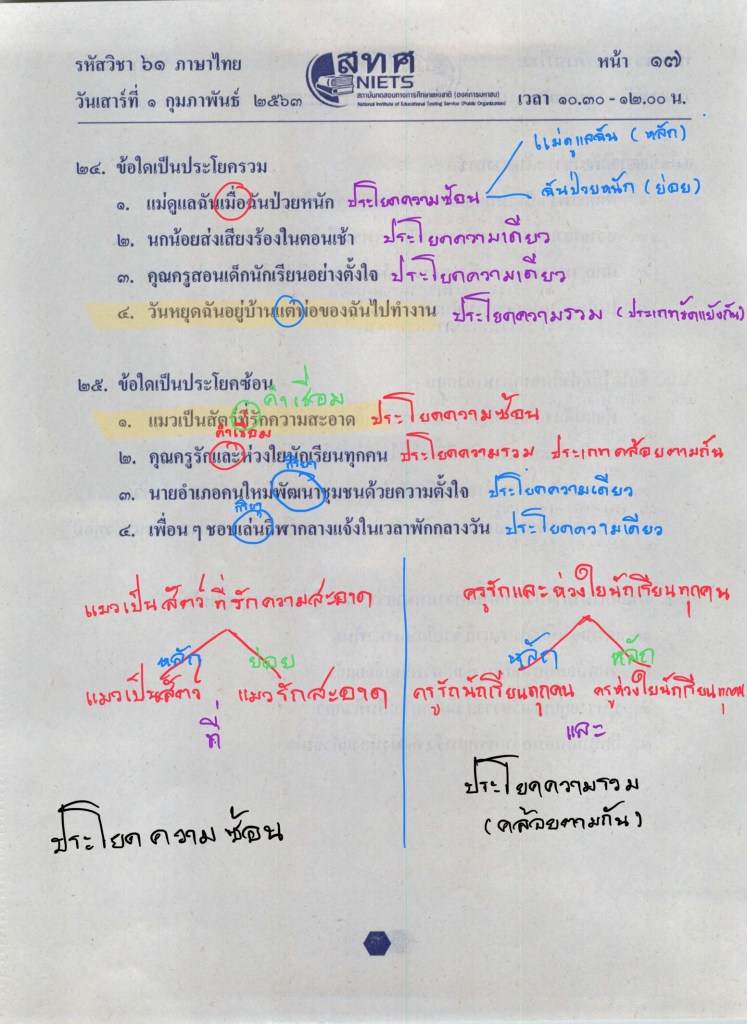 รหัสวิชา ๖๑ ภาษาไทย
สทศ
NIETS
สถาบันทดสอบทางการศึกษาแห่งชาติ (องค์การมหาชน)
National Institute of Educational Testing Service (Public Organization)
หน้า ๑๗
วันเสาร์ที่ ๑ กุมภาพันธ์ ๒๕๖๓
เวลา ๑๐.๓๐ - ๑๒.๐๐ น.
แม่ดูแลฉัน (หลัก)
๒๔. ข้อใดเป็นประโยครวม
ฉันป่วยหนัก (ย่อย)
๑. แม่ดูแลฉันเมื่อฉันป่วยหนัก ประโยคความซ้อน
๒. นกน้อยส่งเสียงร้องในตอนเช้า ประโยคความเดียว
๓. คุณครูสอนเด็กนักเรียนอย่างตั้งใจ ประโยคความเดียว
๔. วันหยุดฉันอยู่บ้านแต่พ่อของฉันไปทำงาน ประโยคความรวม (ประเภทขัดแย้งกัน)
๒๕. ข้อใดเป็นประโยคซ้อน
คำเชื่อม
๑. แมวเป็นสัตว์ที่รักความสะอาด ประโยคความซ้อน
คำเชื่อม
๒. คุณครูรักและห่วงใยนักเรียนทุกคน ประโยคความรวม ประเภทคล้อยตามกัน
กริยา
๓. นายอำเภอคนใหม่พัฒนาชุมชนด้วยความตั้งใจ ประโยคความเดียว
กริยา
๔. เพื่อน ๆ ชอบเล่นกีฬากลางแจ้งในเวลาพักกลางวัน ประโยคความเดียว
แมวเป็นสัตว์ ที่รักความสะอาด
หลัก ย่อย
แมวเป็นสัตว์ แมวรักสะอาด
ที่
ประโยคความซ้อน
ครูรักและห่วงใยนักเรียนทุกคน
หลัก หลัก
ครูรักนักเรียนทุกคน ครูห่วงใยนักเรียนทุกคน
และ
ประโยคความรวม
(คล้อยตามกัน)